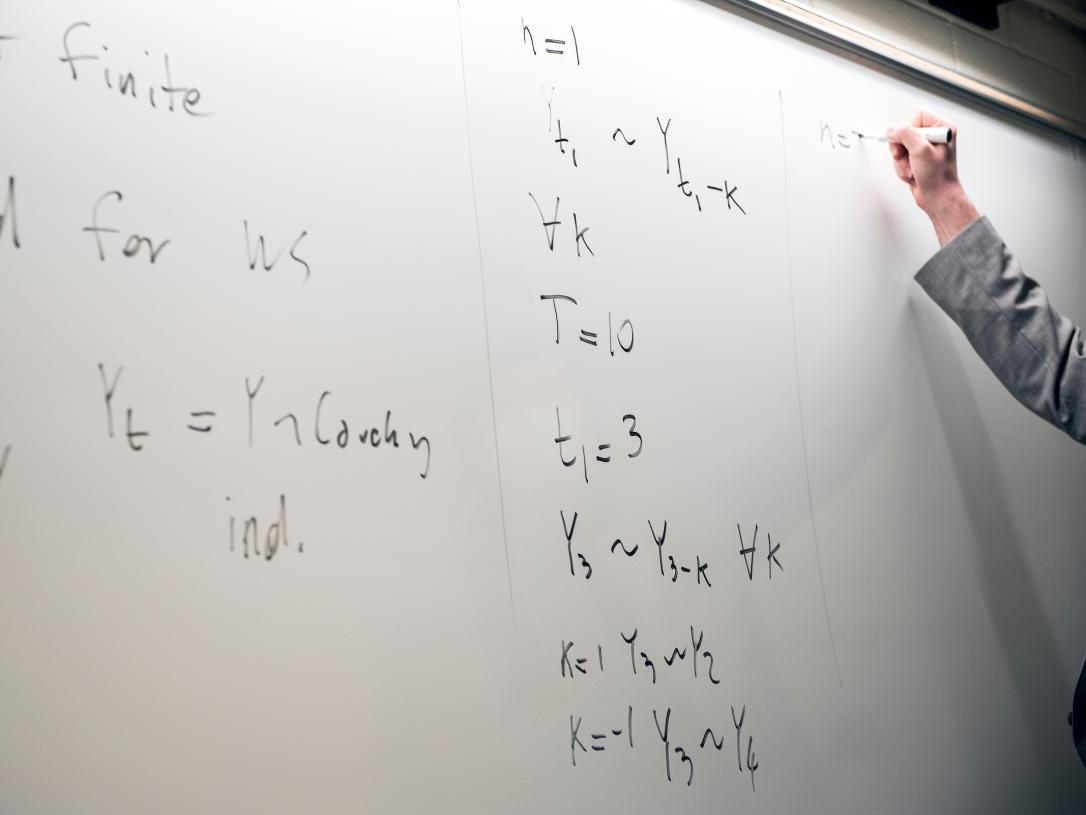 finite
for WS
Y_t = Y ~ Cauchy
ind.
n=1
Y_{t_1} ~ Y_{t_1-k}
∀k
T=10
t_1=3
Y_3 ~ Y_{3-k} ∀k
k=1 Y_3 ~ Y_2
k=-1 Y_3 ~ Y_4
n=